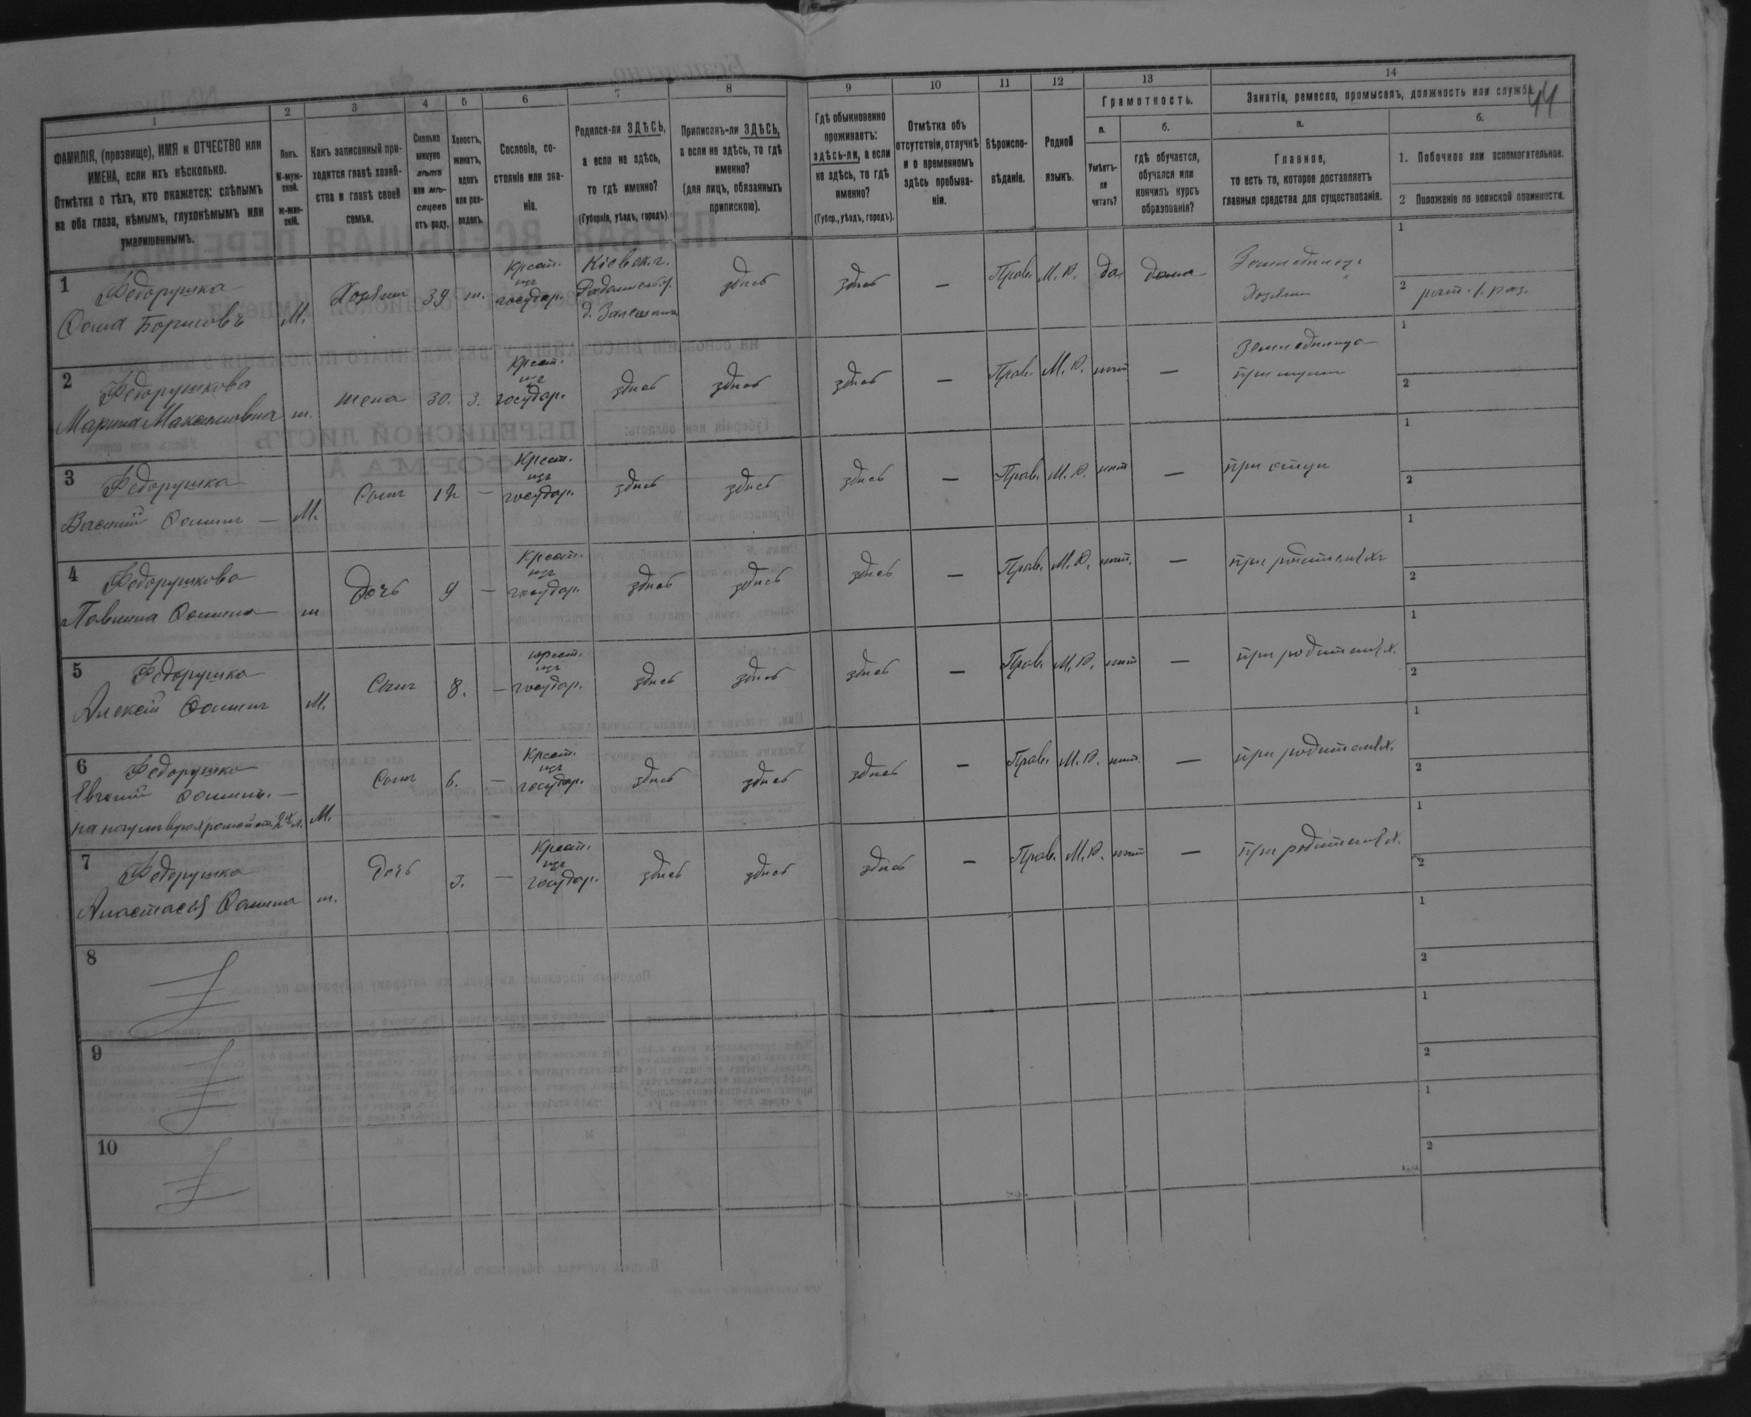 44
1
2
3
4
5
6
7
8
9
10
11
12
13
14
ФАМИЛІЯ, (прозвище), ИМЯ и ОТЧЕСТВО или
ИМЕНА, если ихъ нѣсколько.
Отмѣтка о тѣхъ, кто окажется: слѣпымъ
на оба глаза, нѣмымъ, глухонѣмымъ или
умалишеннымъ.
Полъ.
М-муж-
ской.
ж-жен-
скій.
Какъ записанный при-
ходится главѣ хозяй-
ства и главѣ своей
семьи.
Сколько
минуло
лѣтъ
или мѣ-
сяцевъ
отъ роду.
Холостъ,
женатъ,
вдовъ
или раз-
веденъ.
Сословіе, со-
стояніе или зва-
ніе.
Родился-ли ЗДѢСЬ,
а если не здѣсь,
то гдѣ именно?
(Губернія, уѣздъ, городъ).
Приписанъ-ли ЗДѢСЬ,
а если не здѣсь, то гдѣ
именно?
(для лицъ, обязанныхъ
припискою).
Гдѣ обыкновенно
проживаетъ:
здѣсь-ли, а если
не здѣсь, то гдѣ
именно?
(Губер., уѣздъ, городъ).
Отмѣтка объ
отсутствіи, отлучкѣ
и о временномъ
здѣсь пребыва-
ніи.
Вѣроиспо-
вѣданіе.
Родной
языкъ.
Грамотность.
а.
б.
Умѣетъ-
ли
читать?
гдѣ обучается,
обучался или
кончилъ курсъ
образованія?
Занятіе, ремесло, промыселъ, должность или служба.
а.
б.
Главное,
то есть то, которое доставляетъ
главныя средства для существованія.
1. Побочное или вспомогательное.
2 Положеніе по воинской повинности.
1
Федорушко
Фома Борисовъ
М.
Хозяин
39
ж.
Крест.
изъ
государ.
Кіевск. г.
Радомысл. у.
здѣсь
здѣсь
—
Прав.
М. Р.
да
дома
Земледѣлецъ
Хозяин
1
2
рат. 1. раз.
2
Федорушкова
Марина Максимовна
ж.
жена
30.
з.
Крест.
изъ
государ.
здѣсь
здѣсь
здѣсь
—
Прав.
М. Р.
нѣт
—
Земледѣлица
при мужѣ
1
2
3
Федорушко
Василій Фомин —
М.
Сын
12
—
Крест.
изъ
государ.
здѣсь
здѣсь
здѣсь
—
Прав.
М. Р.
нѣт
—
при отцѣ
1
2
4
Федорушкова
Фомина —
ж
Дочь
9
—
Крест.
изъ
государ.
здѣсь
здѣсь
здѣсь
—
Прав.
М. Р.
нѣт.
—
при родителях
1
2
5
Федорушко
Алексѣй Фомин
М.
Сын
8.
—
крест.
изъ
государ.
здѣсь
здѣсь
здѣсь
—
Прав.
М. Р.
нѣт
—
при родителях.
1
2
6
Федорушко
Евгеній Фомин. —
М.
Сын
6.
—
Крест.
изъ
государ.
здѣсь
здѣсь
здѣсь
—
Прав.
М. Р.
нѣт.
—
при родителях.
1
2
7
Федорушко
Анастасія Фомина
ж.
Дочь
3.
—
Крест.
изъ
государ.
здѣсь
здѣсь
здѣсь
—
Прав.
М. Р.
нѣт
—
при родителях.
1
2
8
1
2
9
1
2
10
1
2